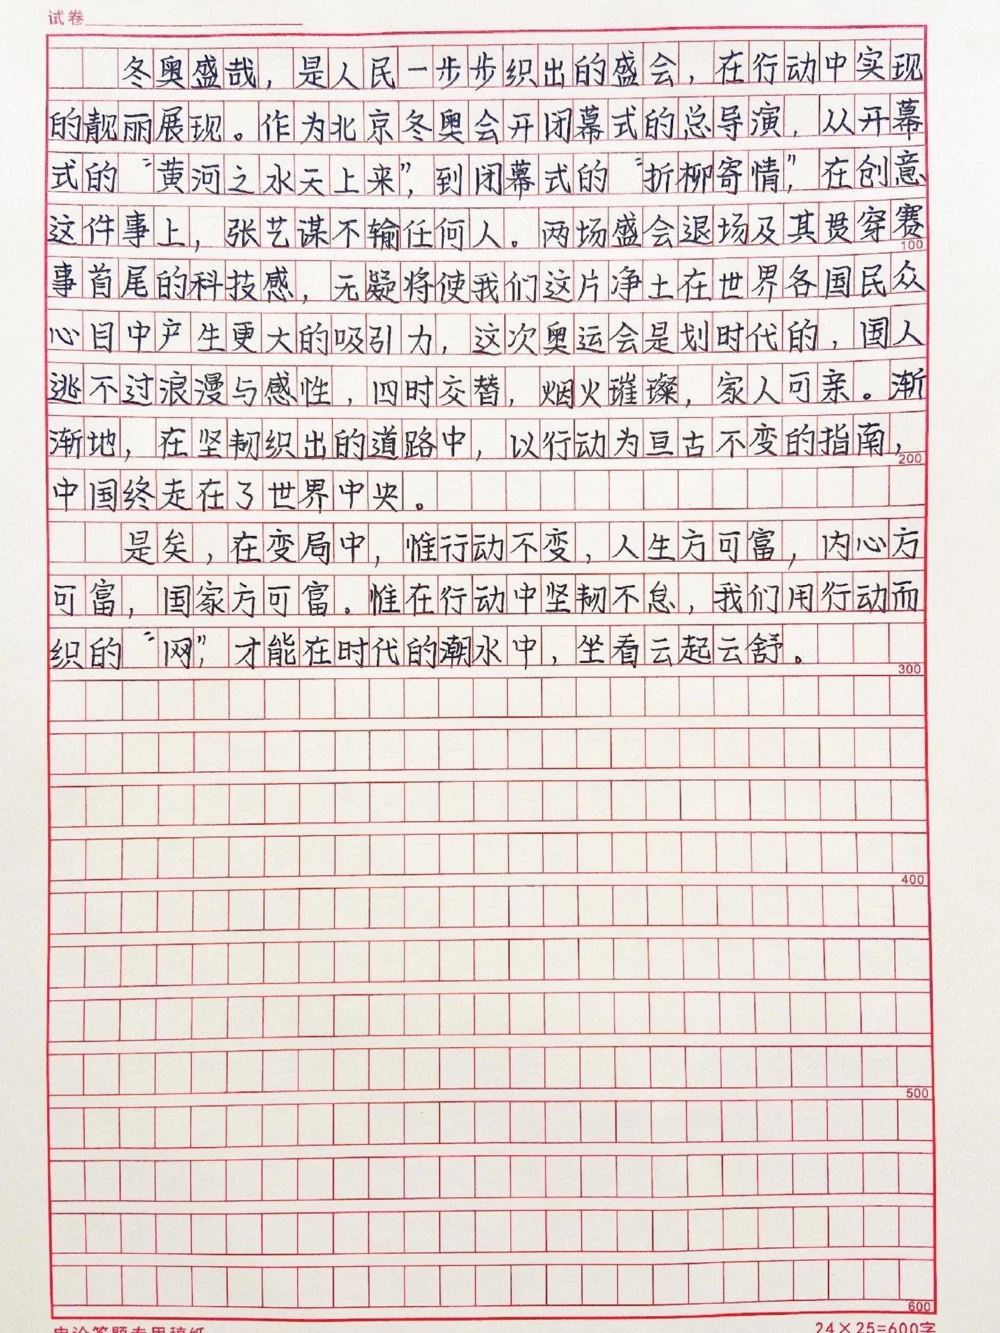 试卷
冬奥盛哉，是人民一步步织出的盛会，在行动中实现
的靓丽展现。作为北京冬奥会开闭幕式的总导演，从开幕
式的“黄河之水天上来”，到闭幕式的“折柳寄情”，在创意
这件事上，张艺谋不输任何人。两场盛会退场及其贯穿赛
100
事首尾的科技感，无疑将使我们这片净土在世界各国民众
心目中产生更大的吸引力，这次奥运会是划时代的，国人
逃不过浪漫与感性，四时交替，烟火璀璨，家人可亲。渐
渐地，在坚韧织出的道路中，以行动为亘古不变的指南，
200
中国终走在了世界中央。
是矣，在变局中，惟行动不变，人生方可富，内心方
可富，国家方可富。惟在行动中坚韧不怠，我们用行动而
织的“网”，才能在时代的潮水中，坐看云起云舒。
300
400
500
600
申论答题专用稿纸
24×25=600字